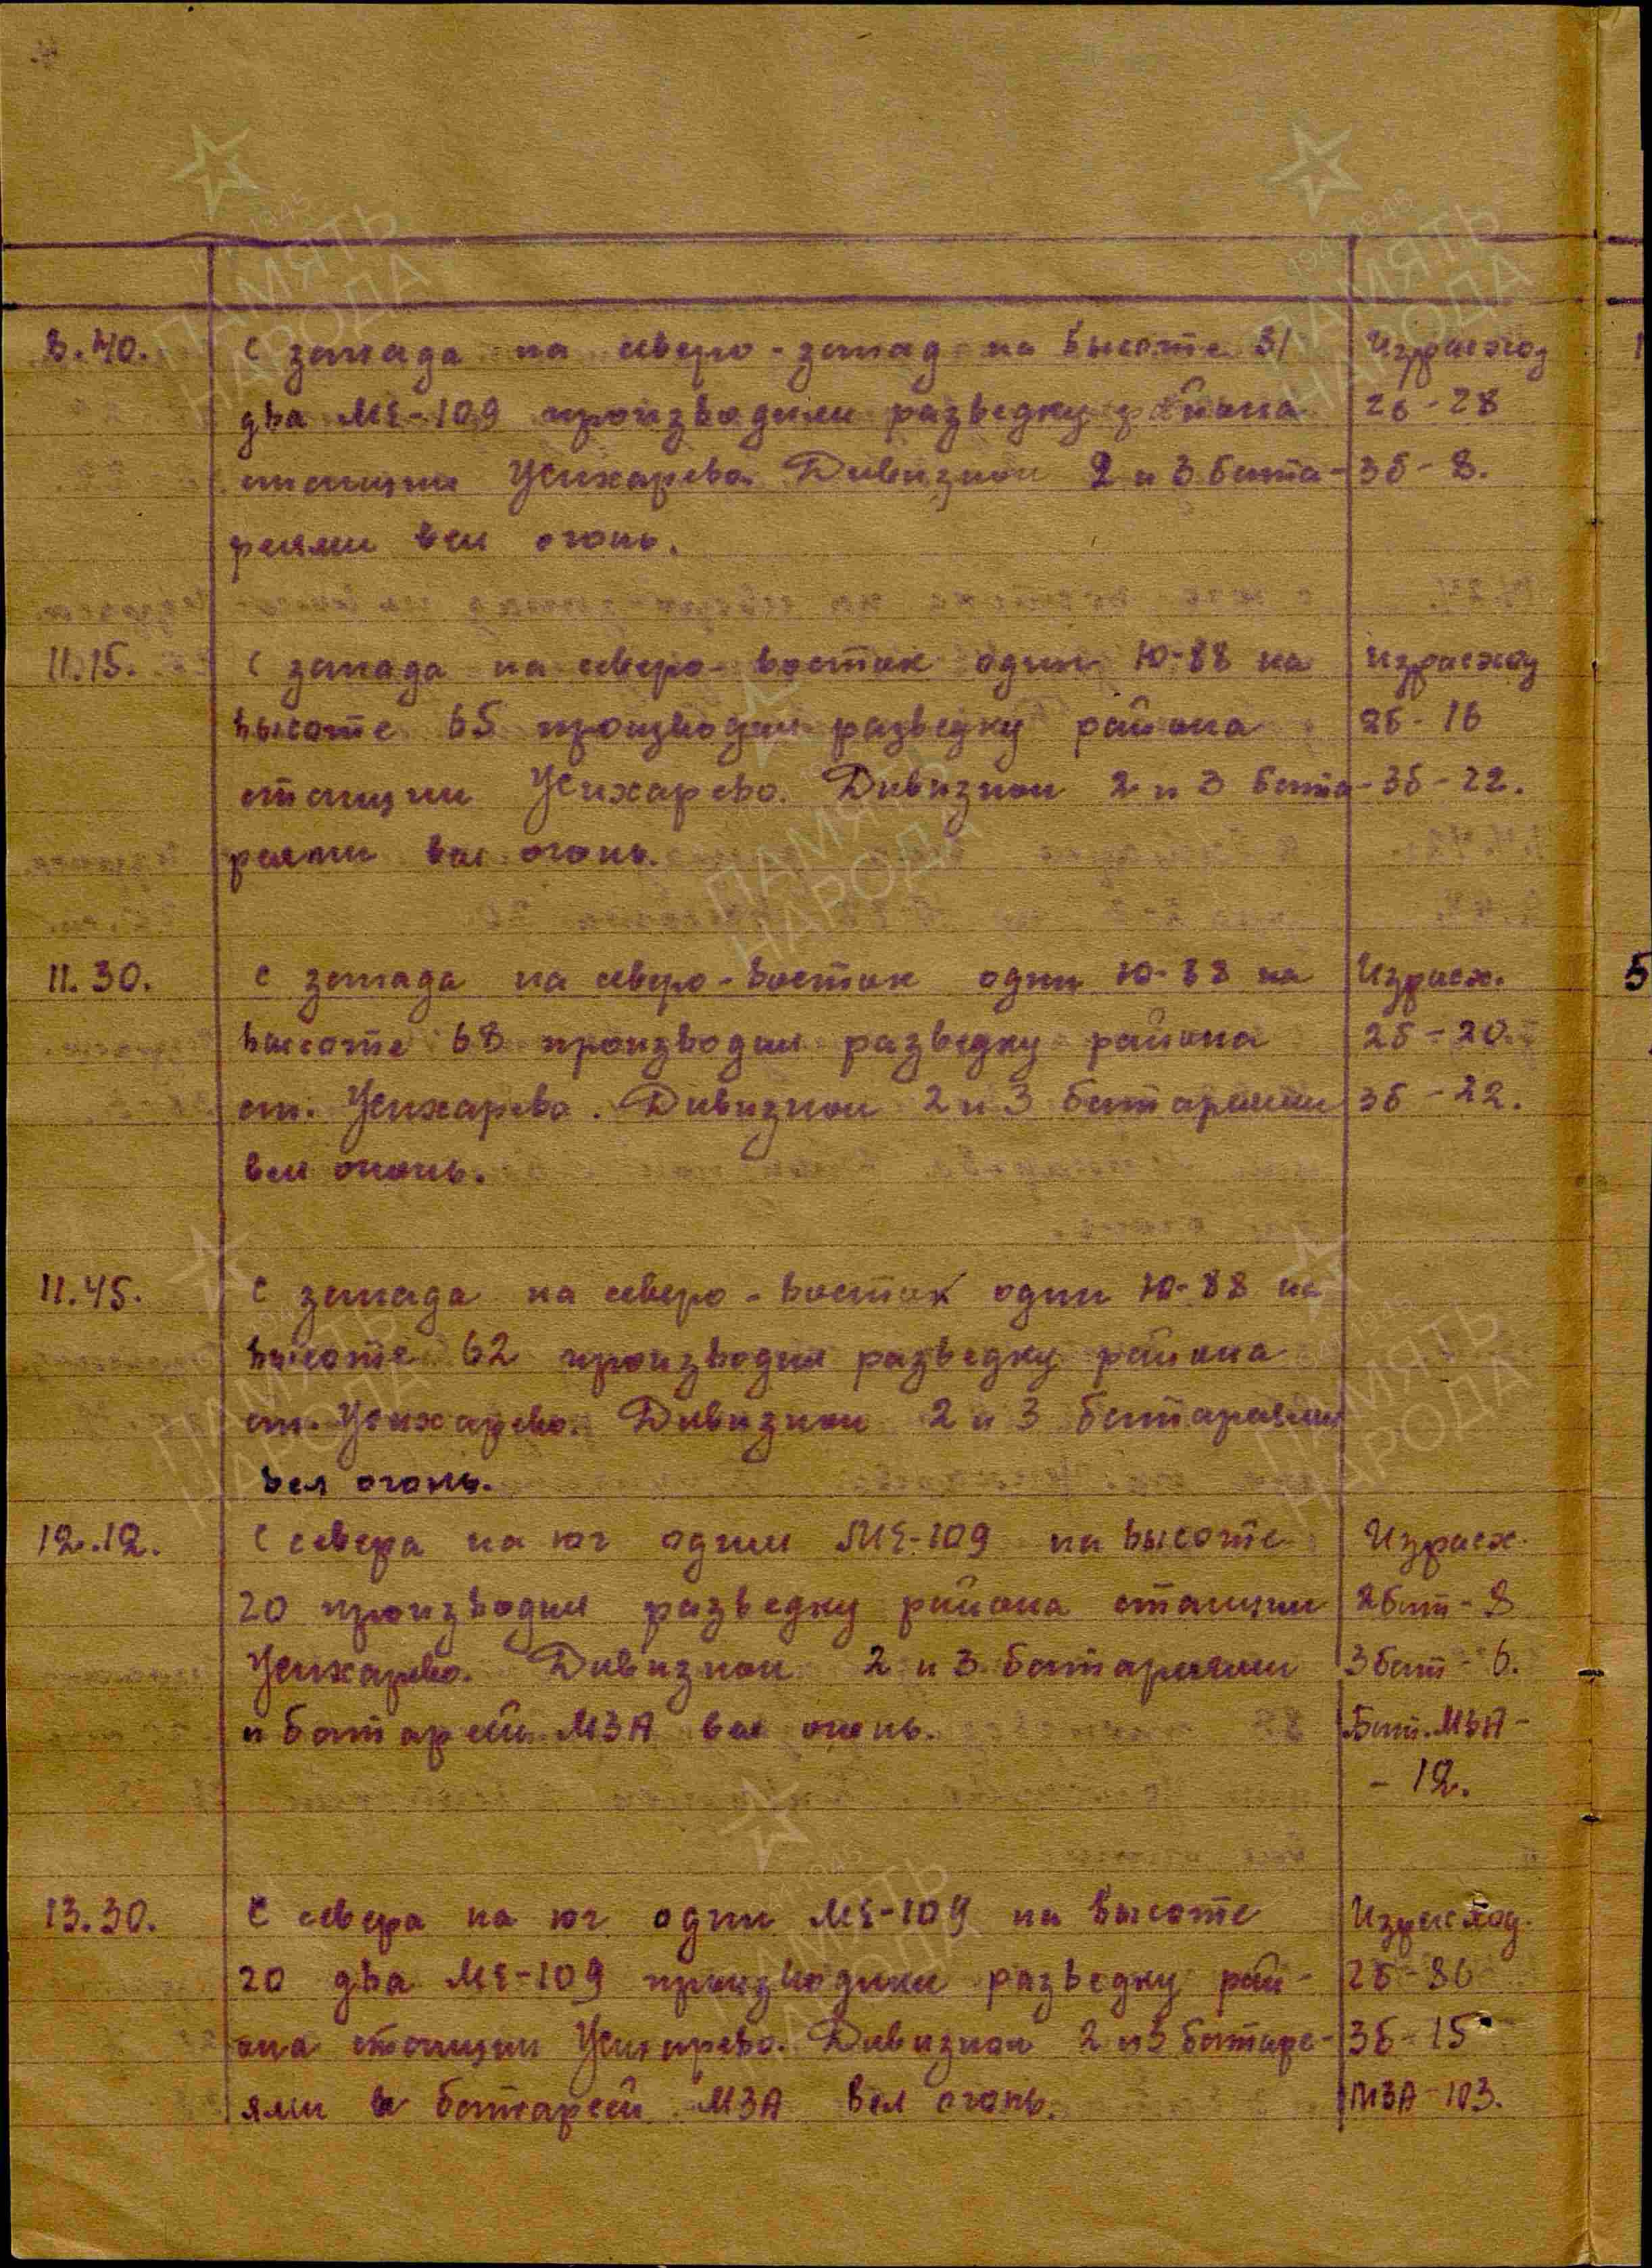 8.40. С запада на северо-запад на высоте 31 Израсход
два МЕ-109 производили разведку района 2б-28
станции Жихарево. Дивизион 2 и 3 бата- 3б-8.
реями вел огонь.
11.15. С запада на северо-восток один Ю-88 на израсход
высоте 65 производил разведку района 2б-16
станции Жихарево. Дивизион 2 и 3 бата- 3б-22.
реями вел огонь.
11.30. С запада на северо-восток один Ю-88 на Израсх.
высоте 68 производил разведку района 2б-20.
ст. Жихарево. Дивизион 2 и 3 батареями 3б-22.
вел огонь.
11.45. С запада на северо-восток один Ю-88 на
высоте 62 производил разведку района
ст. Жихарево. Дивизион 2 и 3 батареями
вел огонь.
12.12. С севера на юг один МЕ-109 на высоте Израсх.
20 производил разведку района станции 2бат-8
Жихарево. Дивизион 2 и 3 батареями 3бат-6.
и батареей МЗА вел огонь. Бат. МЗА-
-12.
13.30. С севера на юг один МЕ-109 на высоте Израсход.
20 два МЕ-109 производили разведку рай- 2б-36
она станции Жихарево. Дивизион 2 и 3 батаре- 3б-15
ями и батареей МЗА вел огонь. МЗА-103.
ПАМЯТЬ
НАРОДА